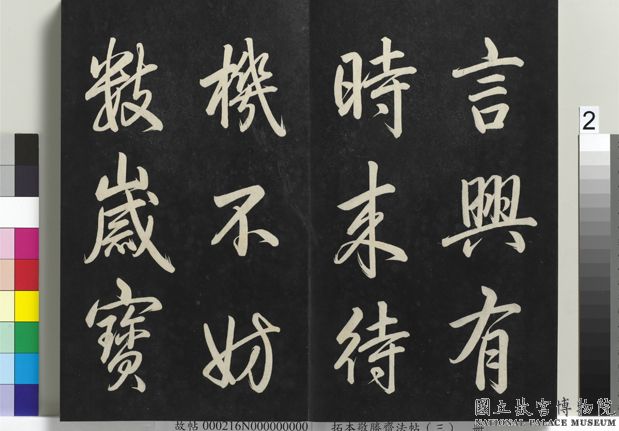 言興有
時來待
機不妨
數歲寶
2
故帖 000216N000000000 拓本敬勝齋法帖(三)
國立故宮博物院
NATIONAL PALACE MUSEUM